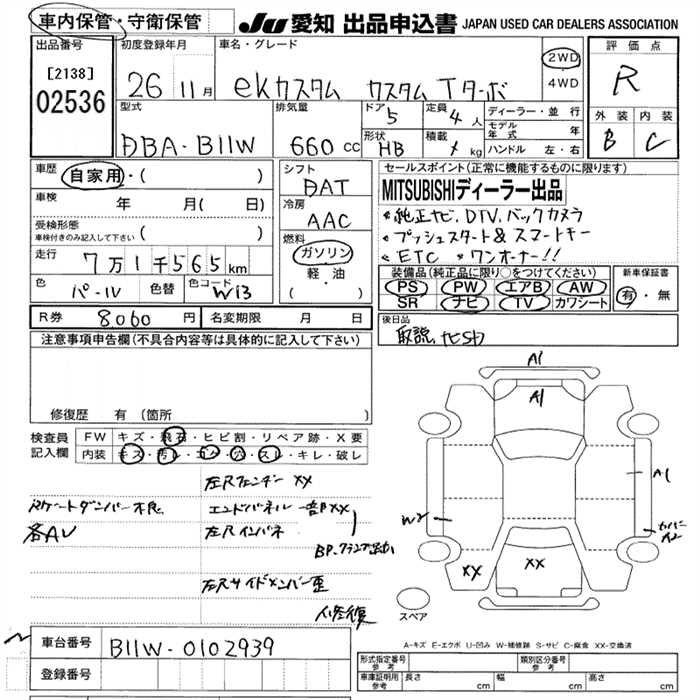 車内保管・守衛保管 JU 愛知 出品申込書 JAPAN USED CAR DEALERS ASSOCIATION
出品番号 初度登録年月 車名・グレード 評価点
[2138] 26 11月 ekカスタム カスタムTターボ 2WD・4WD R
02536
型式 排気量 ドア 5 定員 4人 ディーラー・並行 外装 内装
DBA-B11W 660cc 形状 HB 積載 kg モデル年式 年 B C
ハンドル 左・右
車歴 自家用・( ) シフト セールスポイント(正常に機能するものに限ります)
DAT MITSUBISHIディーラー出品
車検 年 月( 日) 冷房 純正ナビ、DTV、バックカメラ
受検形態 AAC プッシュスタート&スマートキー
車検付きのみ記入して下さい 燃料 ETC ワンオーナー!!
走行 7万1千565km ガソリン 装備品(純正品に限り○をつけてください) 新車保証書
軽・油 PS PW エアB AW 有・無
色 パール 色替 色コード W13 ( ) SR ナビ TV カワシート
R券 8060円 名変期限 月 日 後日品
注意事項申告欄(不具合内容等は具体的に記入して下さい) 取説、ナビSD
修復歴 有(箇所 )
検査員記入欄 FW キズ・飛石・ヒビ割・リペア跡・X要
内装 キズ・汚レ・コゲ・穴・スレ・キレ・破レ
左Rフェンダー XX
エンドパネル 一部XX
各AU 左Rインパネ
左Rサイドメンバー
修復
A1
A1
A1
W2
カバーA2
XX XX
スペア
A-キズ E-エクボ U-凹み W-補修跡 S-サビ C-腐食 XX-交換済
車台番号 B11W-0102939
登録番号
形式指定番号 参考 類別区分番号 参考
車庫証明用 参考 長さ cm 幅 cm 高さ cm